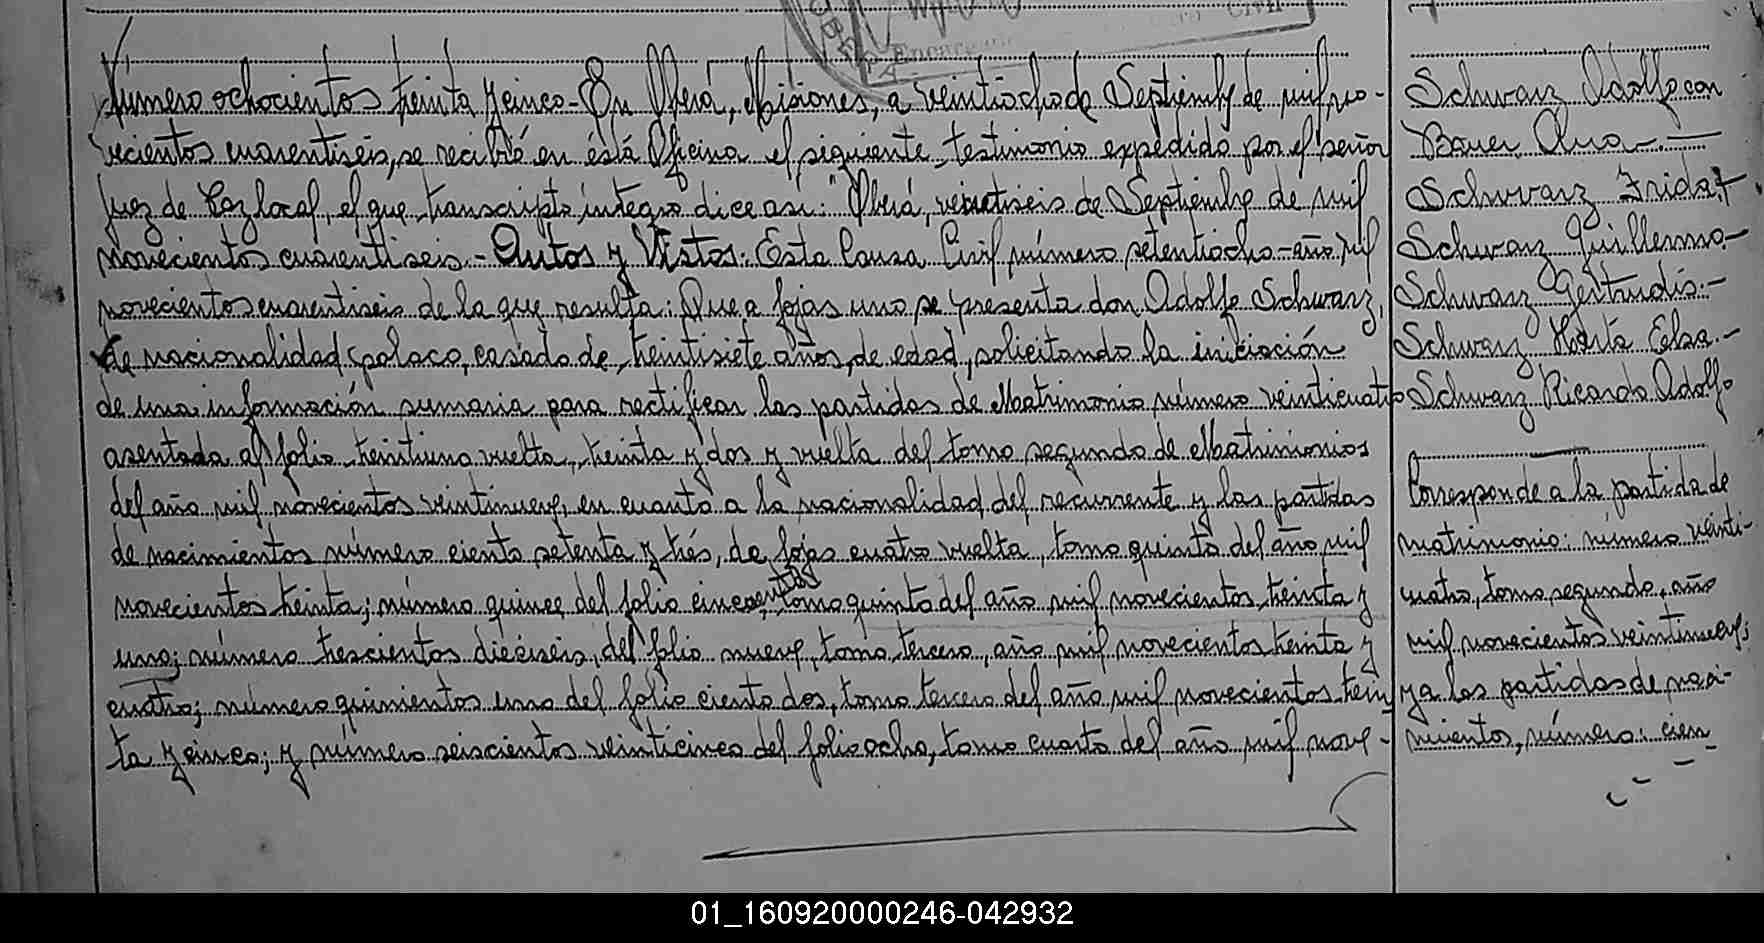 Número ochocientos treinta y cinco - En Oberá, Misiones, a veintiocho de Septiembre de mil no-
vecientos cuarentiseis, se recibió en ésta Oficina el siguiente testimonio expedido por el señor
Juez de Paz local, el que transcripto íntegro dice así: "Oberá, veintiseis de Septiembre de mil
novecientos cuarentiseis.- Autos y Vistos: Esta Causa Civil número setentiocho - año mil
novecientos cuarentiseis de la que resulta: Que a fojas uno se presenta don Adolfo Schwarz,
de nacionalidad polaco, casado de treintisiete años de edad, solicitando la iniciación
de una información sumaria para rectificar las partidas de Matrimonio número veinticuatro
asentada al folio treintiuno vuelta, treinta y dos y vuelta del tomo segundo de Matrimonios
del año mil novecientos veintinueve, en cuanto a la nacionalidad del recurrente y las partidas
de nacimientos número ciento setenta y trés, de fojas cuatro vuelta, tomo quinto del año mil
novecientos treinta; número quince del folio cincuenta tomo quinto del año mil novecientos treinta y
uno; número trescientos dieciseis, del folio nueve, tomo tercero, año mil novecientos treinta y
cuatro; número quinientos uno del folio ciento dos, tomo tercero del año mil novecientos trein
ta y cinco; y número seiscientos veinticinco del folio ocho, tomo cuarto del año mil nove-
Schwarz Adolfo con
Bauer Ana.-
Schwarz Frida
Schwarz Guillermo-
Schwarz Gertrudis.-
Schwarz Marta Elsa.-
Schwarz Ricardo Adolfo
Corresponde a la partida de
matrimonio: número veinti-
cuatro, tomo segundo, año
mil novecientos veintinueve;
y a las partidas de naci-
mientos, número: cien
01_160920000246-042932